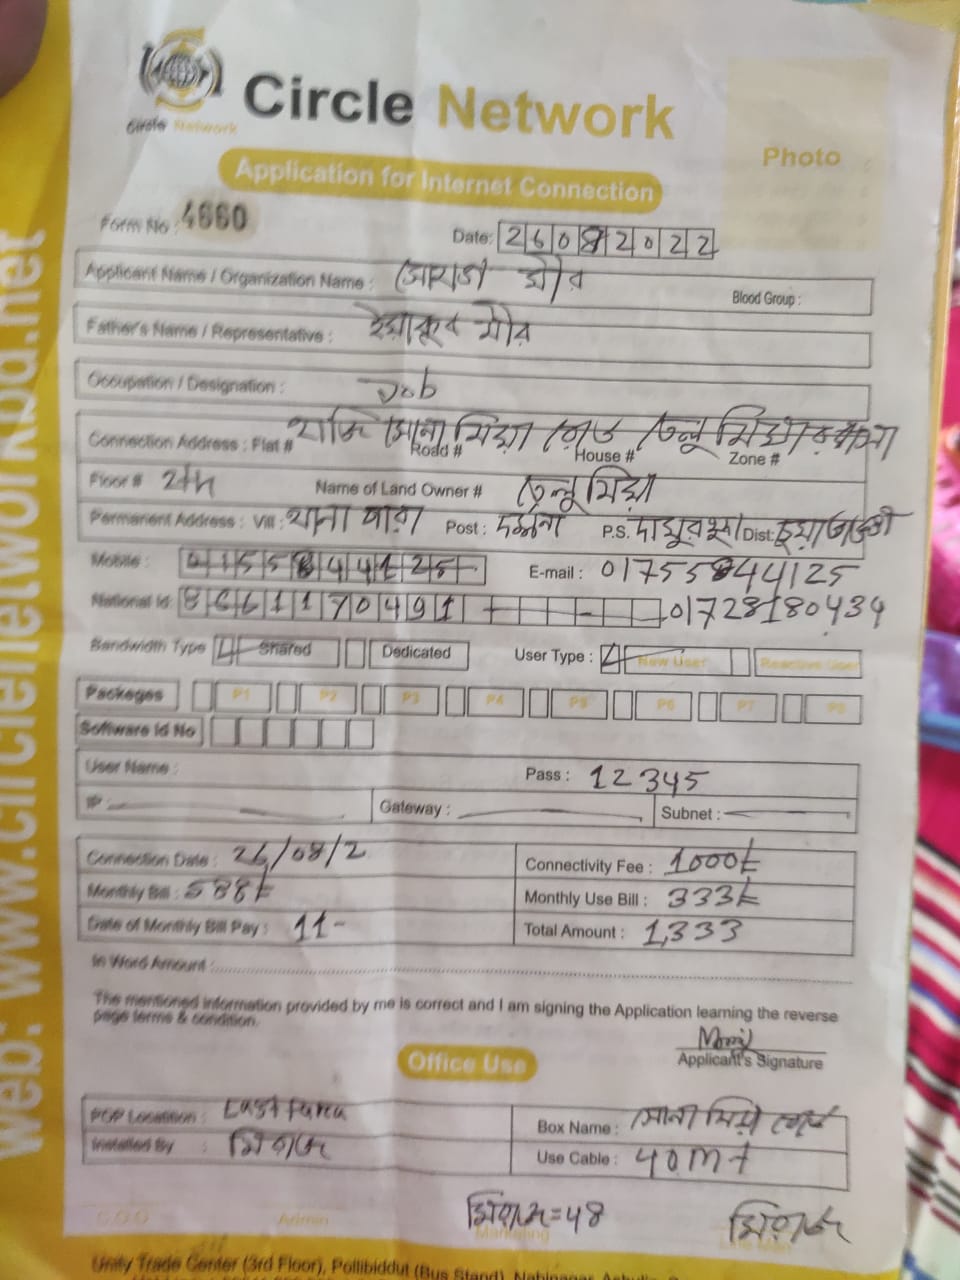 Circle Network
Circle Network
Photo
Application for Internet Connection
Form No : 4660
Date: 26082022
Applicant Name / Organization Name : মীর
Blood Group :
Father's Name / Representative : ইয়াকুব মীর
Occupation / Designation : Job
Connection Address : Flat # হাজি সোনা মিয়া রোড তনু মিয়ার বাসা
Road # House # Zone #
Floor # 2th Name of Land Owner # তনু মিয়া
Permanent Address : Vill : থানা পারা Post : দর্শনা P.S. দামুরহুদা Dist: চুয়াডাঙ্গা
Mobile : 0155844125 E-mail : 01755844125
National Id: 8661170491 01728180434
Bandwidth Type Shared Dedicated User Type : New User Reactive User
Packages P1 P2 P3 P4 P5 P6 P7 P8
Software Id No
User Name : Pass : 12345
IP : Gateway : Subnet :
Connection Date : 26/08/2 Connectivity Fee : 1000/-
Monthly Bill : 588/- Monthly Use Bill : 333/-
Date of Monthly Bill Pay : 11- Total Amount : 1,333
In Word Amount :
The mentioned information provided by me is correct and I am signing the Application learning the reverse
page terms & condition.
Applicant's Signature
Office Use
POP Location : East Para Box Name : সোনা মিয়া রোড
Installed By : মিরাজ Use Cable : 40mt
মিরাজ=48 মিরাজ
C.O.O Admin Marketing Line Man
Unity Trade Center (3rd Floor), Pollibiddut (Bus Stand), Nabinagar,
web: www.circlenetworkbd.net